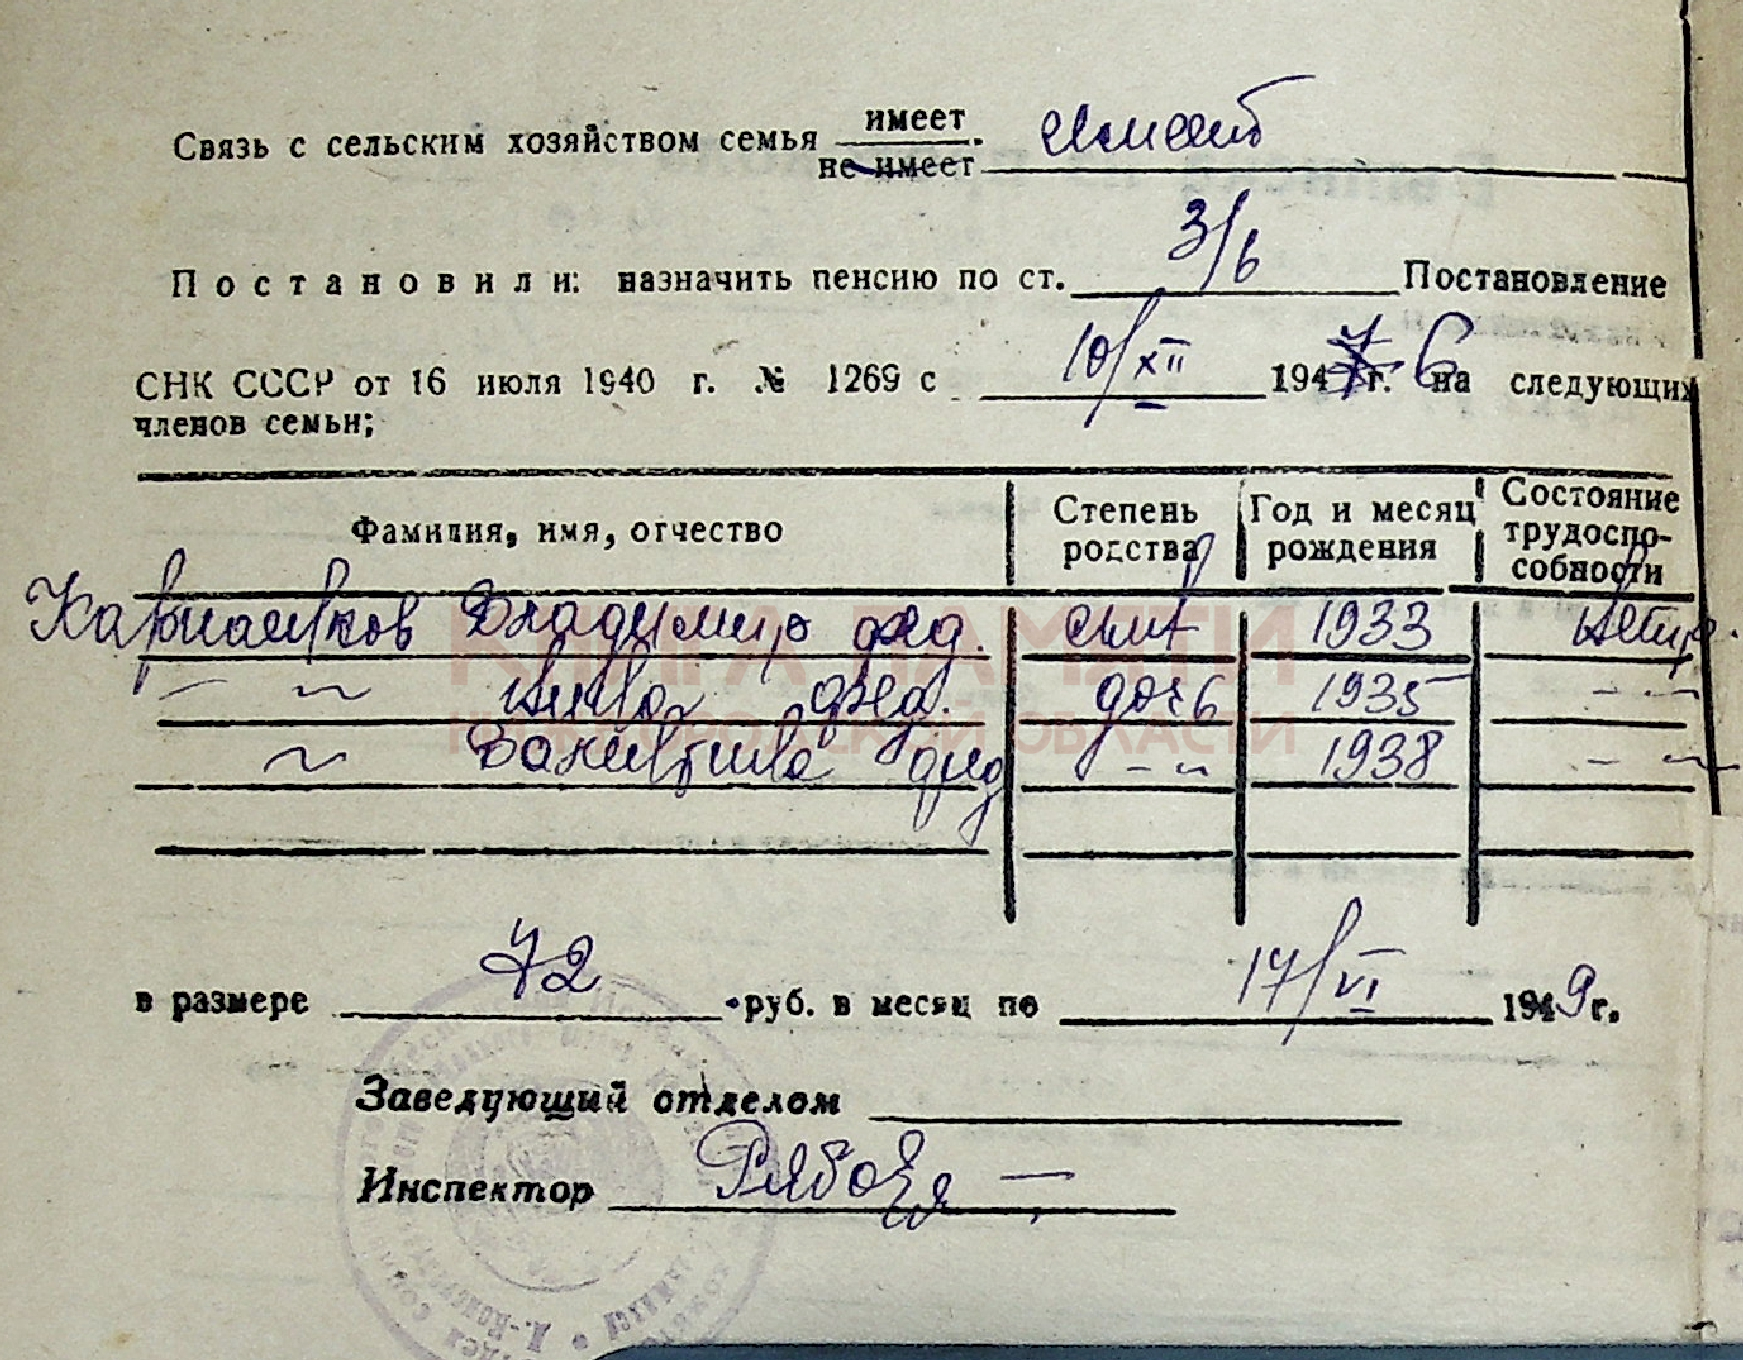 Связь с сельским хозяйством семья имеет. имеет
не имеет
Постановили: назначить пенсию по ст. 3/б Постановление
СНК СССР от 16 июля 1940 г. № 1269 с 10/XII 194 г. 6 на следующих
членов семьи;
Фамилия, имя, отчество Степень родства Год и месяц рождения Состояние трудоспособности
Владимир фед. сын 1933
— " — Нина фед. дочь 1935 — " —
" Валентина фед — " — 1938 — " —
в размере 72 руб. в месяц по 17/VI 1949 г.
Заведующий отделом
Инспектор
КНИГА ПАМЯТИ
НИЖЕГОРОДСКОЙ ОБЛАСТИ